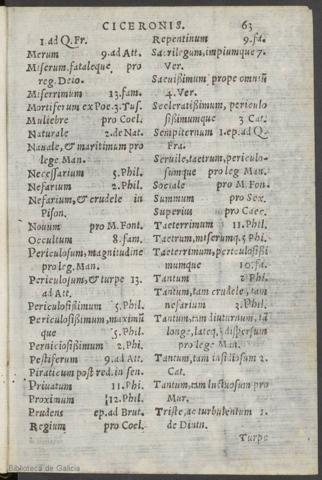 CICERONIS. 63
1. ad Q. Fr.
Merum 9. ad Att.
Miserum, fataleque pro
reg. Deio.
Miserrimum 13. fam.
Mortiferum ex Poe. 3. Tus.
Muliebre pro Coel.
Naturale 2. de Nat.
Nauale, & maritimum pro
lege Man.
Necessarium 5. Phil.
Nefarium 2. Phil.
Nefarium, & crudele in
Pison.
Nouum pro M. Font.
Occultum 8. fam.
Periculosum, magnitudine
pro leg. Man.
Periculosum, & turpe 13.
ad Att.
Periculosissimum 5. Phil.
Periculosissimum, maximū
que 5. Phil.
Perniciosissimum 2. Phi.
Pestiferum 9. ad Att.
Piraticum post red. in sen.
Priuatum 11. Phi.
Proximum 12. Phil.
Prudens ep. ad Brut.
Regium pro Coel.
Repentinum 9. fa.
Sacrilegum, impiumque 7.
Ver.
Saeuissimum prope omniū
4. Ver.
Sceleratissimum, periculo
sissimumque 3 Cat.
Sempiternum 1. ep. ad Q.
Fra.
Seruile, taetrum, periculo-
sumque pro leg Man.
Sociale pro M. Fon.
Summum pro Sex.
Superius pro Caec.
Taeterrimum 11. Phil.
Taetrum, miserumq. 5 Phi.
Taeterrimum, periculosissi
mumque 10. fa.
Tantum 2 Phi.
Tantum, tam crudele, tam
nefarium 3. Phil.
Tantum, tam diuturnum, tā
longe, lateq. dispersum
pro lege Man.
Tantum, tam insidiosum 2.
Cat.
Tantum, tam luctuosum pro
Mur.
Triste, ac turbulentum 1.
de Diuin.
Turpe
Biblioteca de Galicia